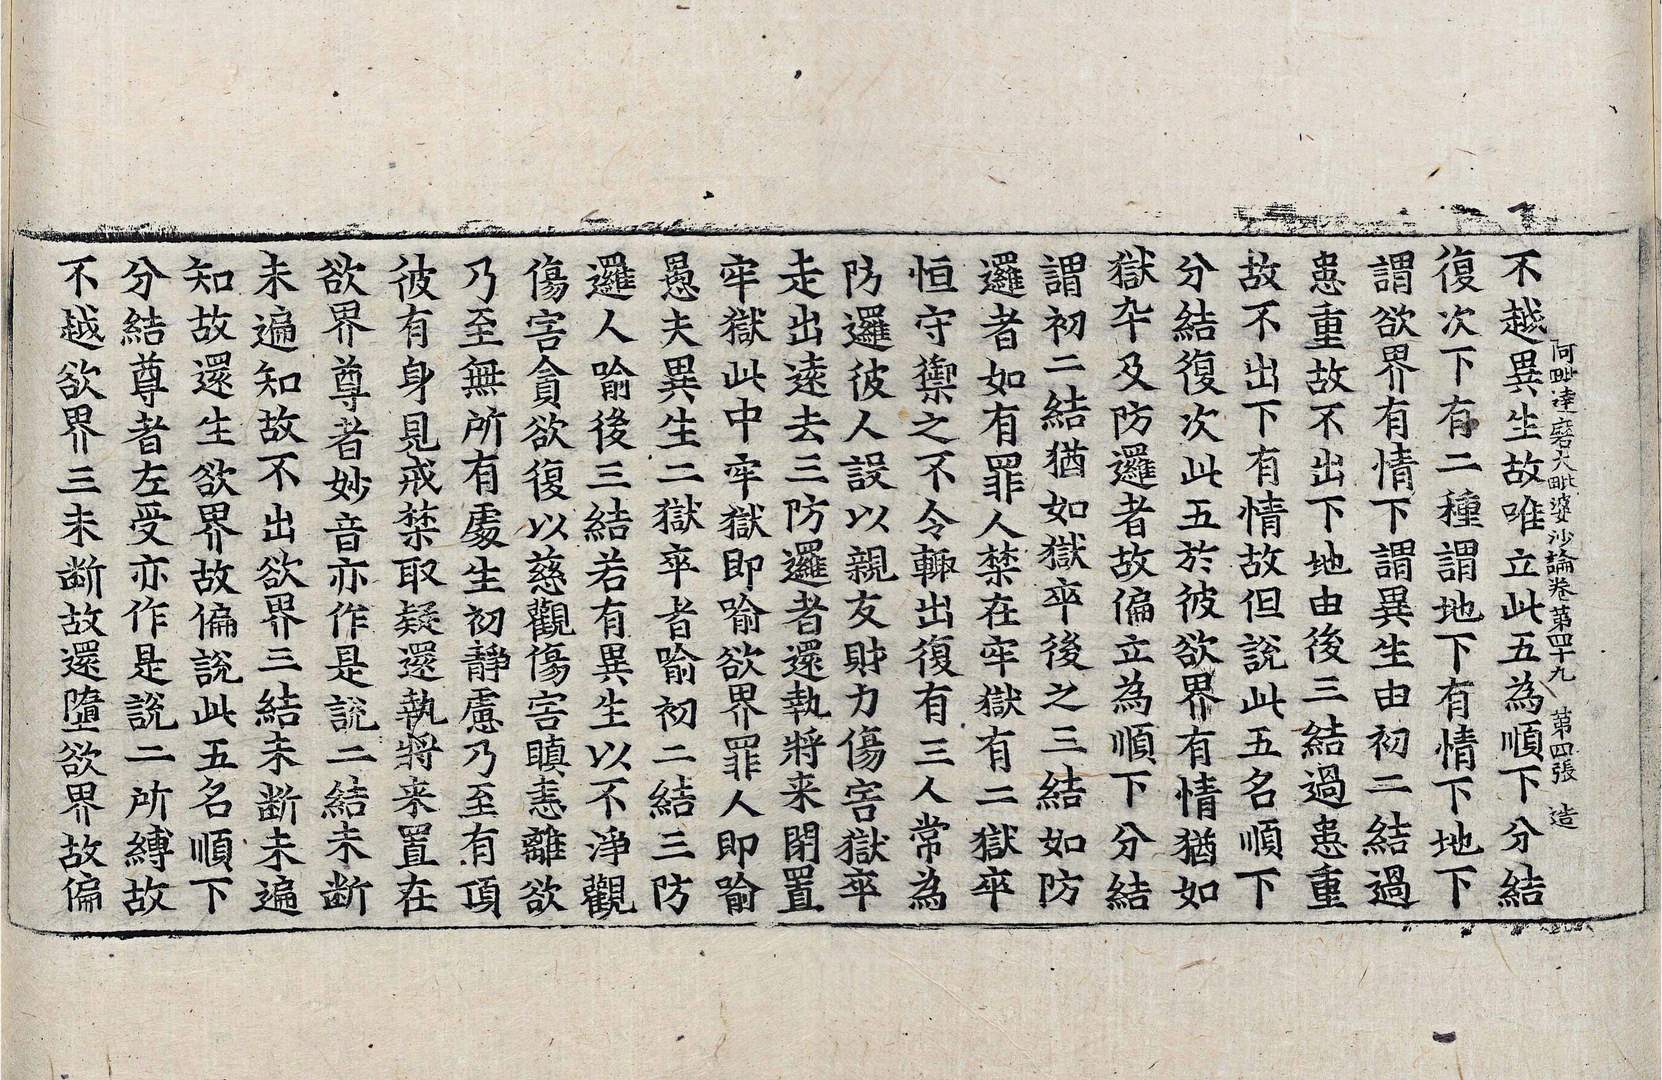 阿毗達磨大毗婆沙論卷第四十九　第四張　造
不越異生故唯立此五為順下分結
復次下有二種謂地下有情下地下
謂欲界有情下謂異生由初二結過
患重故不出下地由後三結過患重
故不出下有情故但說此五名順下
分結復次此五於彼欲界有情猶如
獄卒及防邏者故偏立為順下分結
謂初二結猶如獄卒後之三結如防
邏者如有罪人禁在牢獄有二獄卒
恒守禦之不令輙出復有三人常為
防邏彼人設以親友財力傷害獄卒
走出遠去三防邏者還執將来閉置
牢獄此中牢獄即喻欲界罪人即喻
愚夫異生二獄卒者喻初二結三防
邏人喻後三結若有異生以不淨觀
傷害貪欲復以慈觀傷害瞋恚離欲
乃至無所有處生初靜慮乃至有頂
彼有身見戒禁取疑還執將来置在
欲界尊者妙音亦作是說二結未断
未遍知故不出欲界三結未断未遍
知故還生欲界故偏說此五名順下
分結尊者左受亦作是說二所縛故
不越欲界三未断故還墮欲界故偏